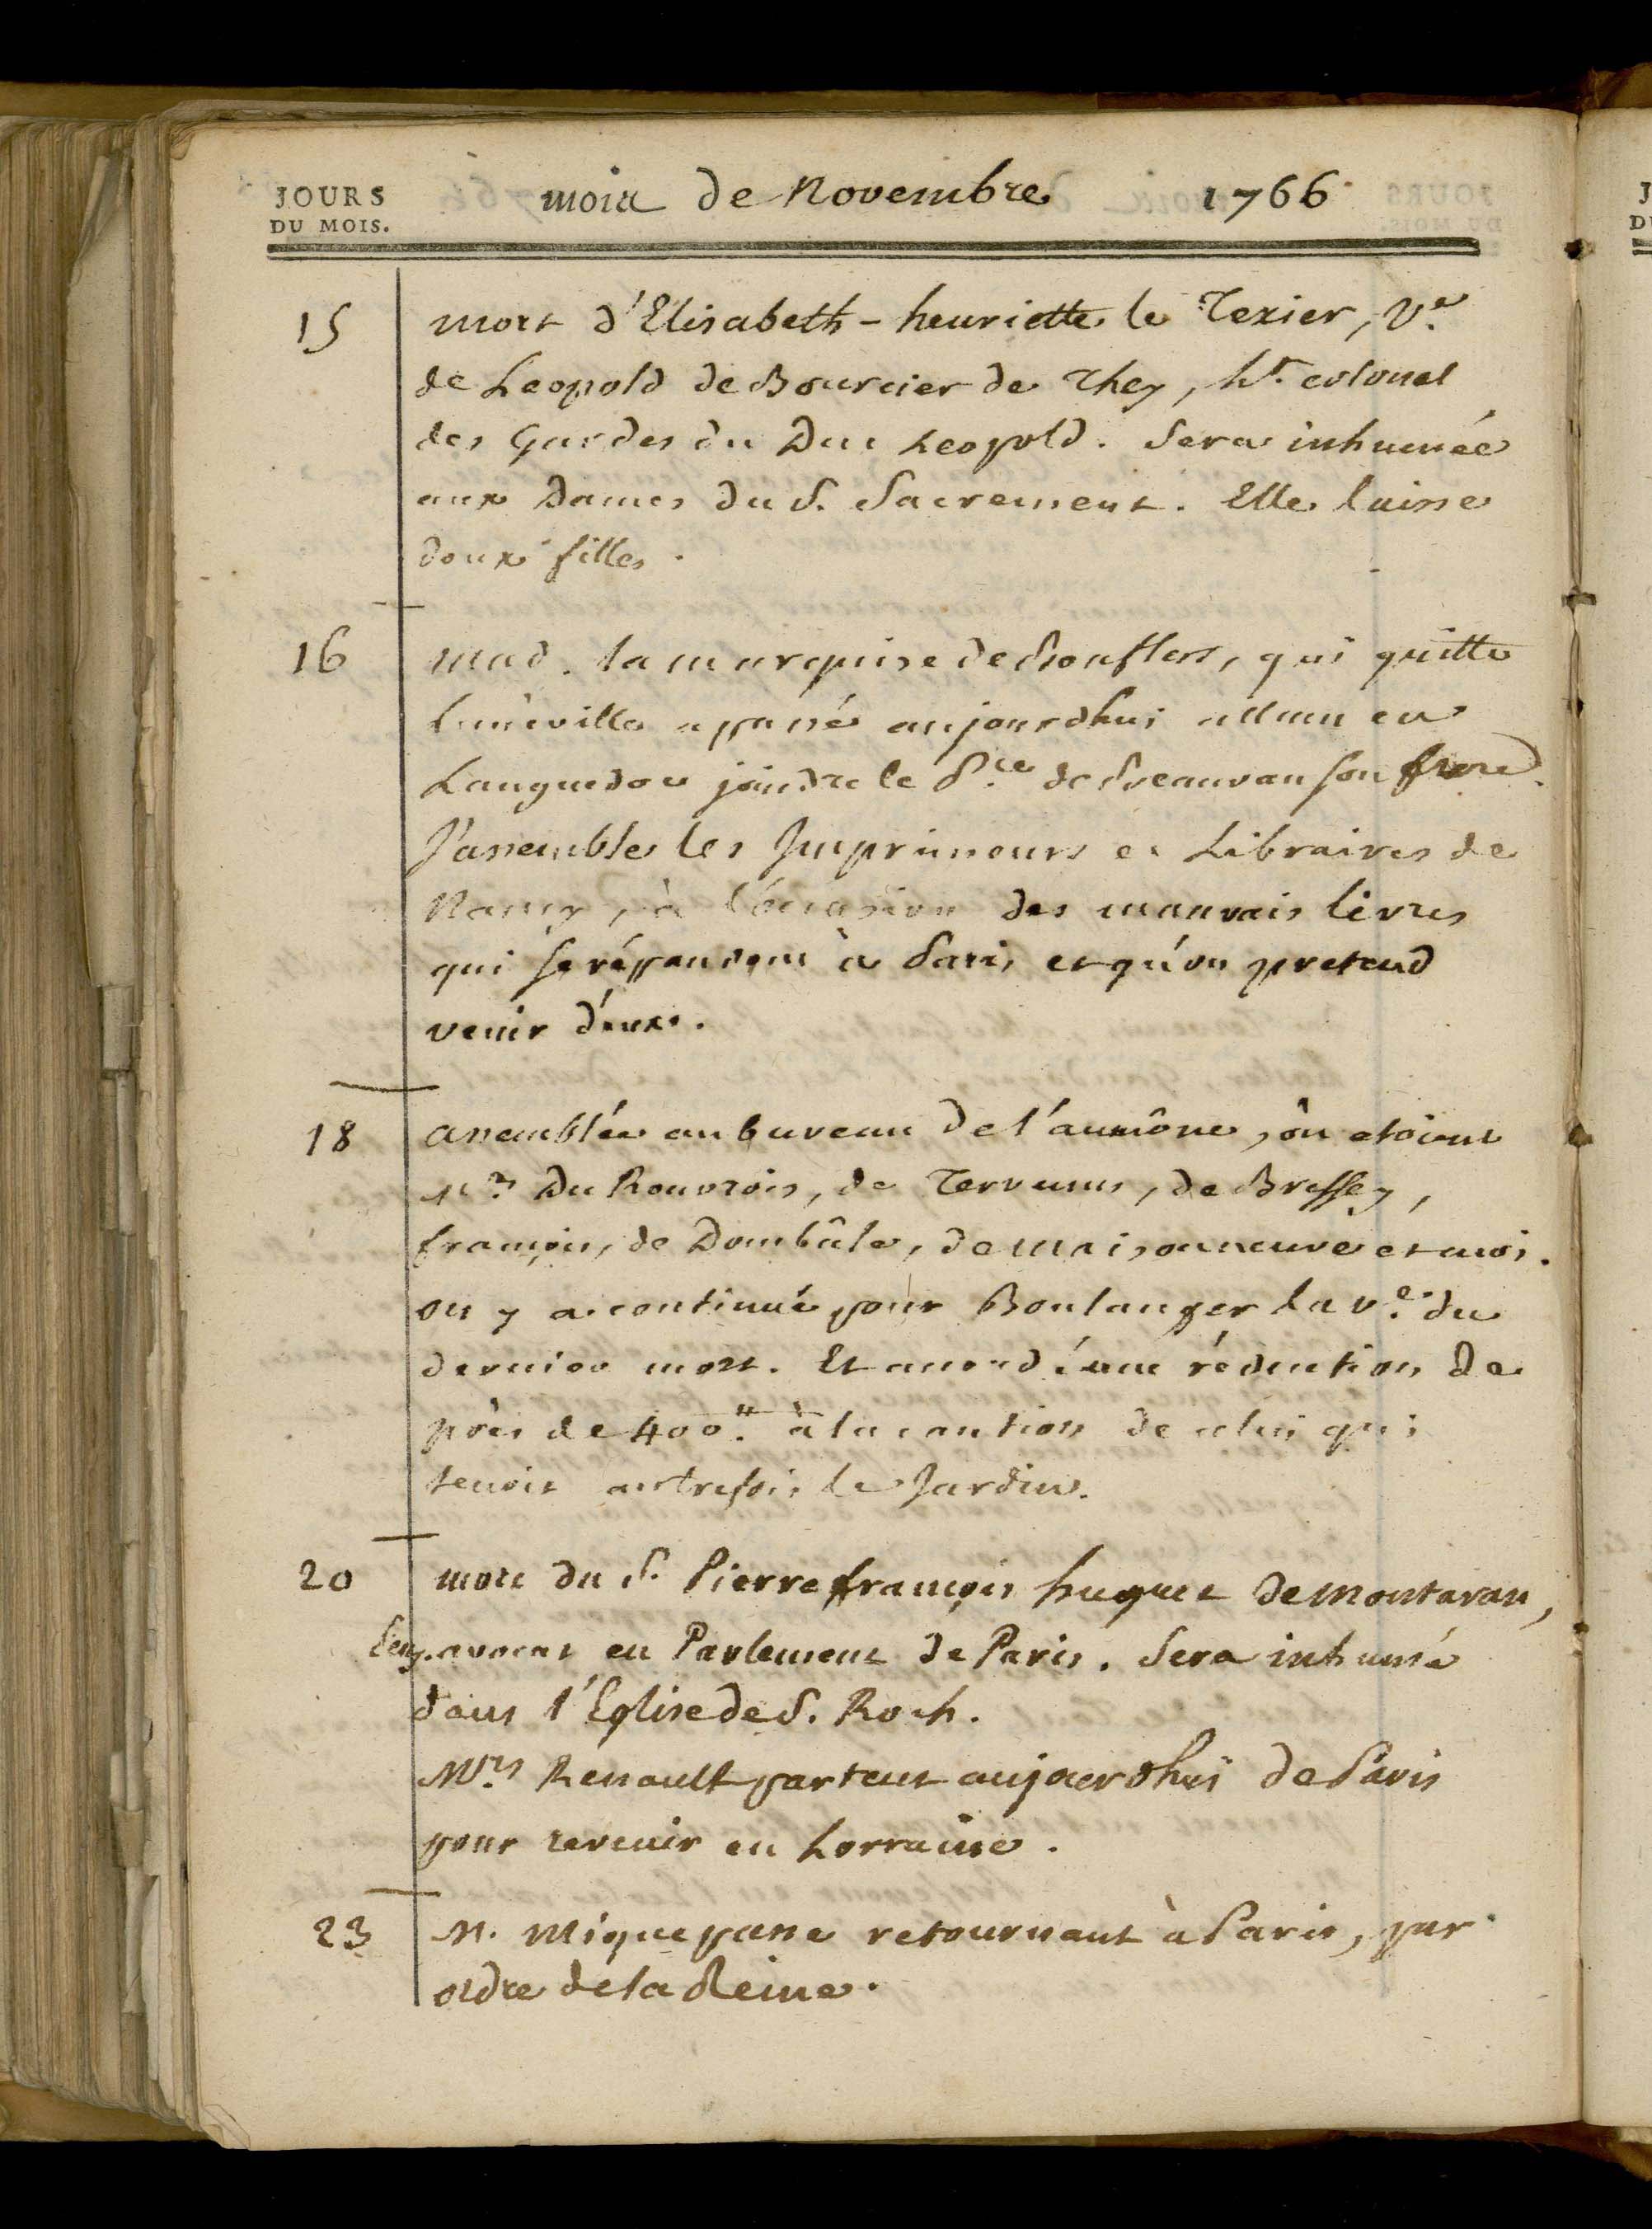 JOURS
DU MOIS.
mois de Novembre 1766
15
mort d'Elisabeth-henriette le Texier, Ve.
de Leopold de Bourcier de They, Lt. colonel
des Gardes du Duc Leopold. Sera inhumée
aux Dames du S. Sacrement. Elle laisse
deux filles.
16
Mad. la marquise de Boufflers, qui quitte
Luneville a passé aujourdhui allant en
Languedoc joindre le Pce. de Beauvau son frere.
J'assemble les Imprimeurs et Libraires de
Nancy, à l'occasion des mauvais livres
qui se répandent à Paris et qu'on pretend
venir d'eux.
18
assemblée au bureau de l'aumône, où etoient
Mrs. Du Rouvrois, de Tervenus, de Bressey,
françois, de Dombâle, de Maisonneuve et moi.
on y a continué pour Boulanger la ve. du
dernier mort. Et accordé une réduction de
près de 400ᵗᵗ. à la caution de celui qui
tenoit autrefois le Jardin.
20
mort du S. Pierre françois huguet de Montaran,
Ecuy. avocat en Parlement de Paris. Sera inhumé
dans l'Eglise de S. Roch.
Mrs Renault partent aujourdhui de Paris
pour revenir en Lorraine.
23
M. Mique passe retournant à Paris, par
ordre de la Reine.